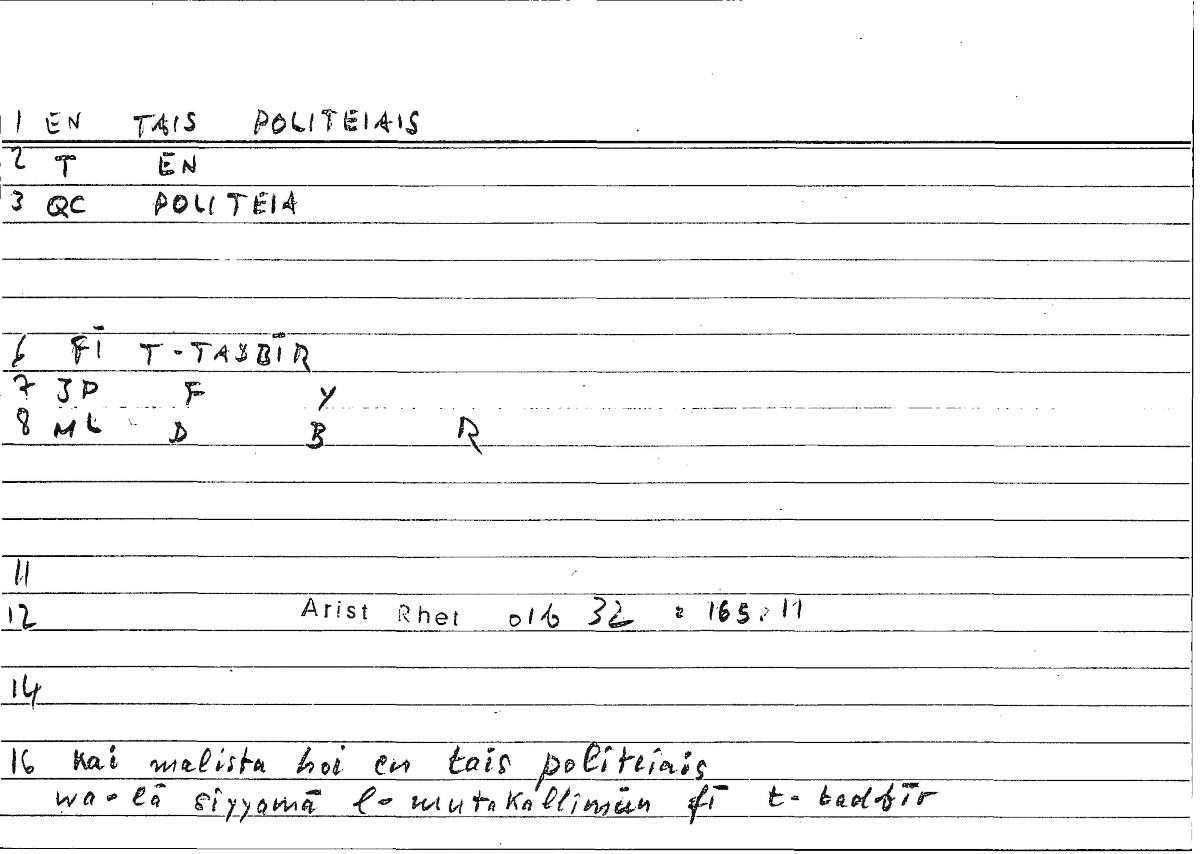 1 EN TAIS POLITEIAIS
2 T EN
3 QC POLITEIA
6 FĪ T-TADBĪR
7 3P F Y
8 ML D B R
11
12 Arist Rhet 01b 32 = 165.11
14
16 kai malista hoi en tais politeiais
wa-lā siyyamā l-mutakallimūn fī t-tadbīr